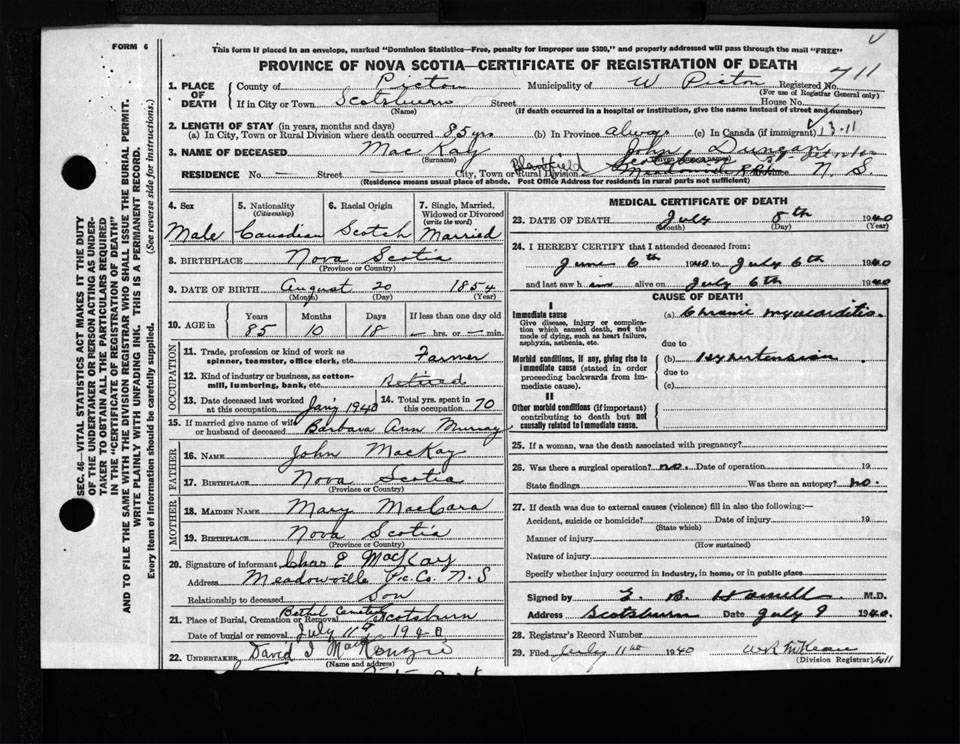 FORM 6
This form if placed in an envelope, marked "Dominion Statistics—Free, penalty for improper use $300," and properly addressed will pass through the mail "FREE"
PROVINCE OF NOVA SCOTIA—CERTIFICATE OF REGISTRATION OF DEATH
711
1. PLACE OF DEATH County of Pictou Municipality of W Pictou Registered No.
(For use of Registrar General only)
If in City or Town Scotsburn Street House No.
(Name) (If death occurred in a hospital or institution, give the name instead of street and number)
2. LENGTH OF STAY (in years, months and days)
(a) In City, Town or Rural Division where death occurred 85 yrs (b) In Province always (c) In Canada (if immigrant)
13-11
3. NAME OF DECEASED MacKay John, Duncan
(Surname) (Given names)
RESIDENCE No. — Street — City, Town or Rural Division Meadowville Province N. S.
(Residence means usual place of abode. Post Office Address for residents in rural parts not sufficient)
SEC. 46—VITAL STATISTICS ACT MAKES IT THE DUTY
OF THE UNDERTAKER OR PERSON ACTING AS UNDER-
TAKER TO OBTAIN ALL THE PARTICULARS REQUIRED
IN THE "CERTIFICATE OF REGISTRATION OF DEATH"
AND TO FILE THE SAME WITH THE DIVISION REGISTRAR WHO SHALL ISSUE THE BURIAL PERMIT.
WRITE PLAINLY WITH UNFADING INK. THIS IS A PERMANENT RECORD.
Every item of information should be carefully supplied. (See reverse side for instructions.)
4. Sex Male
5. Nationality (Citizenship) Canadian
6. Racial Origin Scotch
7. Single, Married, Widowed or Divorced (write the word) Married
8. BIRTHPLACE Nova Scotia
(Province or Country)
9. DATE OF BIRTH August 20 1854
(Month) (Day) (Year)
10. AGE in Years 85 Months 10 Days 18 If less than one day old — hrs. or — min.
OCCUPATION
11. Trade, profession or kind of work as spinner, teamster, office clerk, etc. Farmer
12. Kind of industry or business, as cotton-mill, lumbering, bank, etc. Retired
13. Date deceased last worked at this occupation Jan'y 1940 14. Total yrs. spent in this occupation 70
15. If married give name of wife or husband of deceased Barbara Ann Murray
FATHER
16. NAME John MacKay
17. BIRTHPLACE Nova Scotia
(Province or Country)
MOTHER
18. MAIDEN NAME Mary MacCara
19. BIRTHPLACE Nova Scotia
(Province or Country)
20. Signature of informant Chas E MacKay
Address Meadowville Pic. Co. N. S
Relationship to deceased Son
21. Place of Burial, Cremation or Removal Bethel Cemetery Scotsburn
Date of burial or removal July 11th 1940
22. UNDERTAKER David J MacKenzie
(Name and address)
MEDICAL CERTIFICATE OF DEATH
23. DATE OF DEATH July 8th 1940
(Month) (Day) (Year)
24. I HEREBY CERTIFY that I attended deceased from:
June 6th 1940 to July 6th 1940
and last saw him alive on July 6th 1940
CAUSE OF DEATH
I
Immediate cause (a) Chronic myocarditis.
Give disease, injury or complication which caused death, not the mode of dying, such as heart failure, asphyxia, asthenia, etc.
due to
Morbid conditions, if any, giving rise to immediate cause (stated in order proceeding backwards from immediate cause).
(b) Hypertension
due to
(c)
II
Other morbid conditions (if important) contributing to death but not causally related to immediate cause.
25. If a woman, was the death associated with pregnancy?
26. Was there a surgical operation? no. Date of operation 19
State findings Was there an autopsy? no.
27. If death was due to external causes (violence) fill in also the following:—
Accident, suicide or homicide? Date of injury 19
(State which)
Manner of injury
(How sustained)
Nature of injury
Specify whether injury occurred in industry, in home, or in public place
Signed by M.D.
Address Scotsburn Date July 9 1940.
28. Registrar's Record Number
29. Filed July 11th 1940
(Division Registrar)